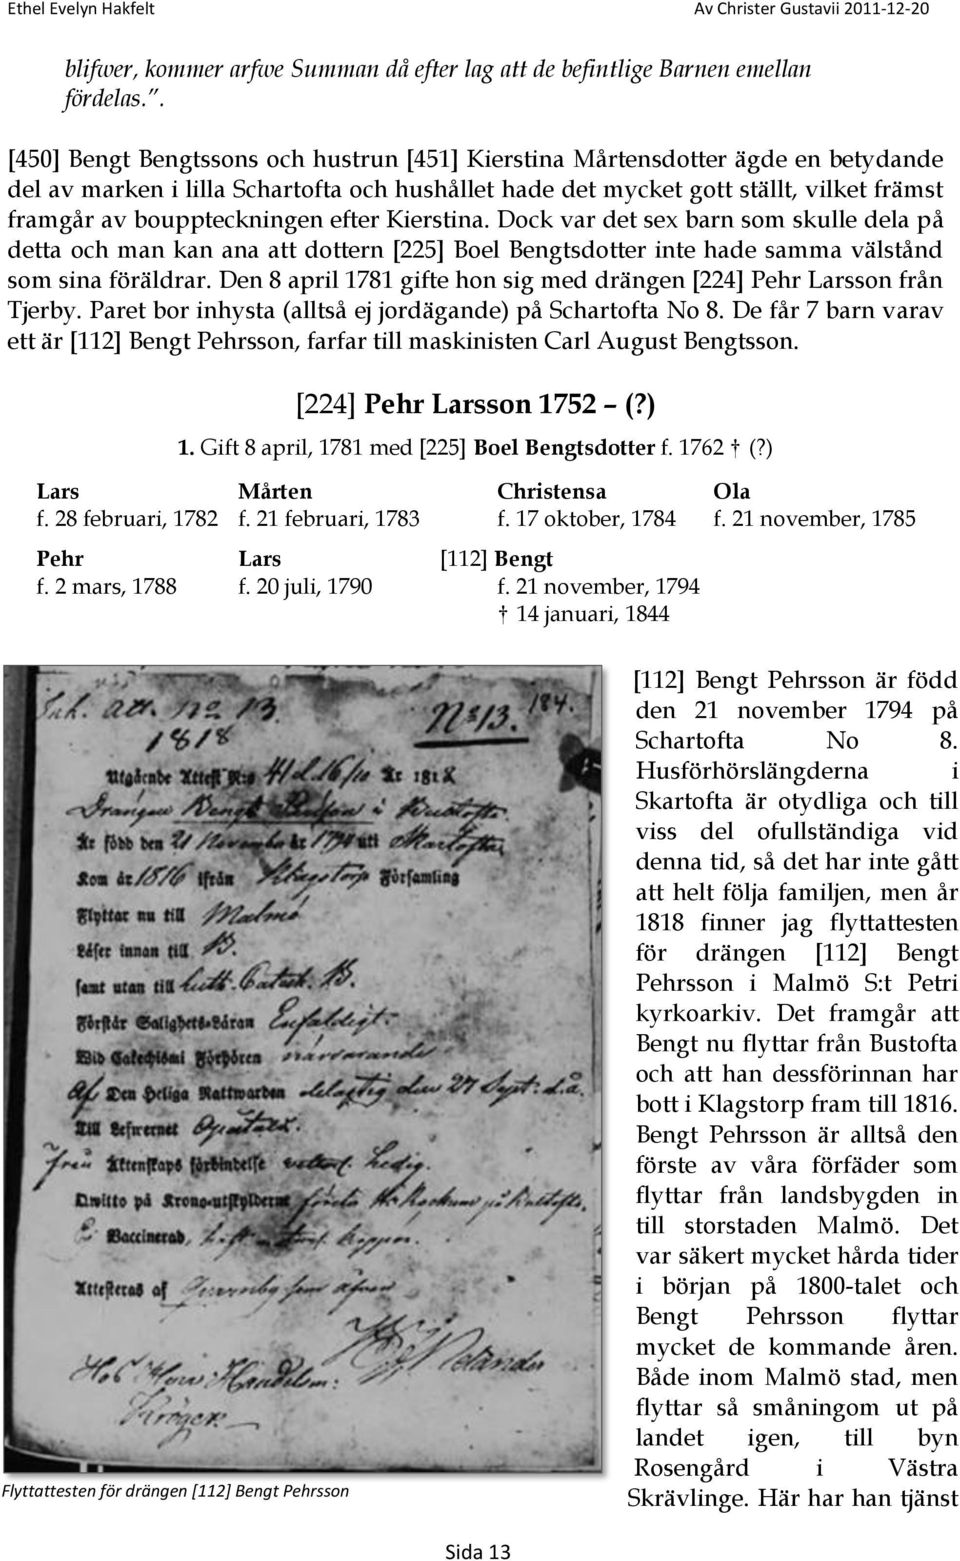 Ethel Evelyn Hakfelt Av Christer Gustavii 2011-12-20
blifwer, kommer arfwe Summan då efter lag att de befintlige Barnen emellan
fördelas.”.
[450] Bengt Bengtssons och hustrun [451] Kierstina Mårtensdotter ägde en betydande
del av marken i lilla Schartofta och hushållet hade det mycket gott ställt, vilket främst
framgår av bouppteckningen efter Kierstina. Dock var det sex barn som skulle dela på
detta och man kan ana att dottern [225] Boel Bengtsdotter inte hade samma välstånd
som sina föräldrar. Den 8 april 1781 gifte hon sig med drängen [224] Pehr Larsson från
Tjerby. Paret bor inhysta (alltså ej jordägande) på Schartofta No 8. De får 7 barn varav
ett är [112] Bengt Pehrsson, farfar till maskinisten Carl August Bengtsson.
[224] Pehr Larsson 1752 – (?)
1. Gift 8 april, 1781 med [225] Boel Bengtsdotter f. 1762 † (?)
Lars Mårten Christensa Ola
f. 28 februari, 1782 f. 21 februari, 1783 f. 17 oktober, 1784 f. 21 november, 1785
Pehr Lars [112] Bengt
f. 2 mars, 1788 f. 20 juli, 1790 f. 21 november, 1794
† 14 januari, 1844
Ink. att. No 13. No 13. 184.
1818
Utgående Attest N:o 41 d. 16/10 År 1818
Drängen Bengt i
Är född den 21 November år 1794 uti Skartofta
Kom år 1816 ifrån Klagstorp Församling
Flyttar nu till Malmö
Läser innan till B.
samt utan till Luth. Catech. B.
Förstår Salighets-Läran Enfaldigt.
Wid Catechismi Förhören närvarande
Af Den Heliga Nattwarden delagtig den 27 Sept: d.å.
Till Lefwernet
från Äktenskaps förbindelse ledig.
Qwitto på Krono-utskylderne
Ej Vaccinerad, koppor.
Attesteras af
[112] Bengt Pehrsson är född
den 21 november 1794 på
Schartofta No 8.
Husförhörslängderna i
Skartofta är otydliga och till
viss del ofullständiga vid
denna tid, så det har inte gått
att helt följa familjen, men år
1818 finner jag flyttattesten
för drängen [112] Bengt
Pehrsson i Malmö S:t Petri
kyrkoarkiv. Det framgår att
Bengt nu flyttar från Bustofta
och att han dessförinnan har
bott i Klagstorp fram till 1816.
Bengt Pehrsson är alltså den
förste av våra förfäder som
flyttar från landsbygden in
till storstaden Malmö. Det
var säkert mycket hårda tider
i början på 1800-talet och
Bengt Pehrsson flyttar
mycket de kommande åren.
Både inom Malmö stad, men
flyttar så småningom ut på
landet igen, till byn
Rosengård i Västra
Skrävlinge. Här har han tjänst
Flyttattesten för drängen [112] Bengt Pehrsson
Sida 13